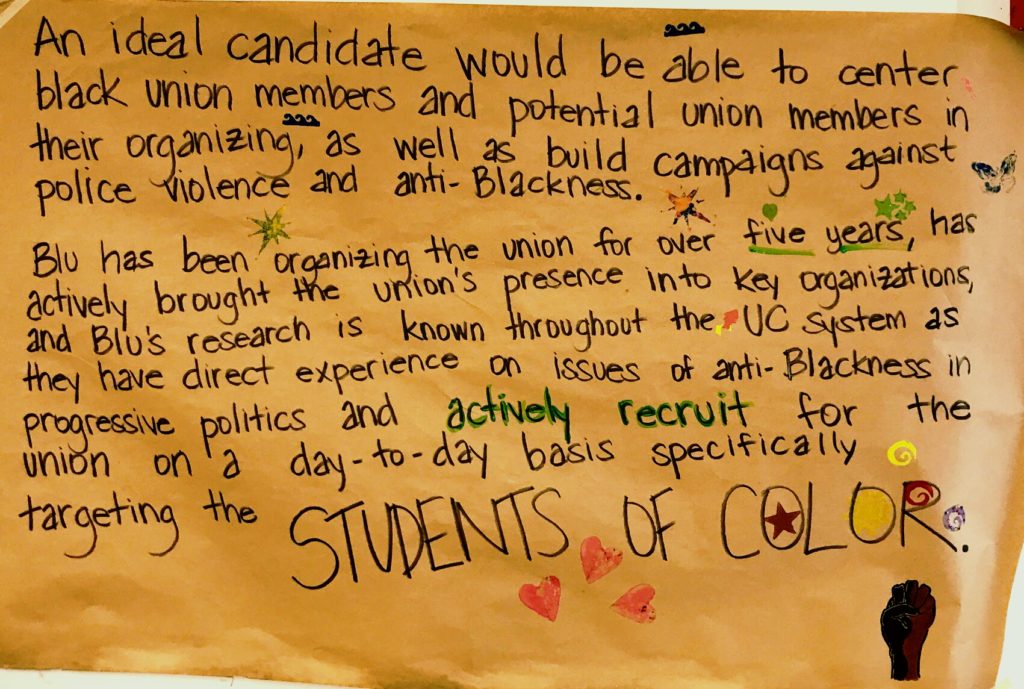 An ideal candidate would be able to center
black union members and potential union members in
their organizing, as well as build campaigns against
police violence and anti-Blackness.
Blu has been organizing the union for over five years, has
actively brought the union's presence into key organizations,
and Blu's research is known throughout the UC system as
they have direct experience on issues of anti-Blackness in
progressive politics and actively recruit for the
union on a day-to-day basis specifically
targeting the STUDENTS OF COLOR.